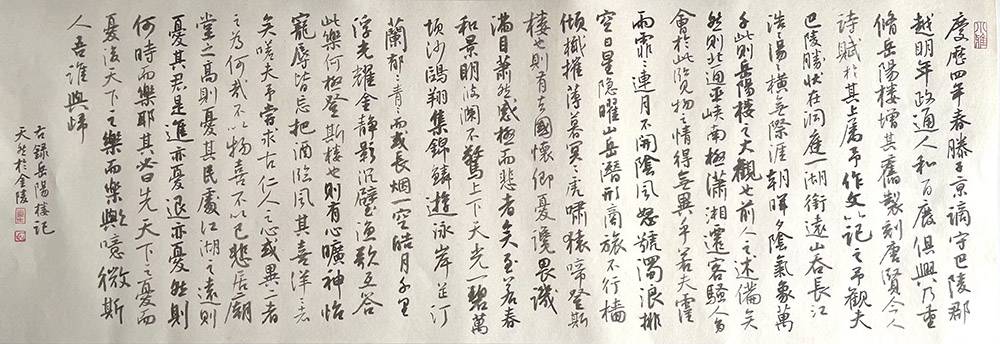 慶歷四年春滕子京謫守巴陵郡
越明年政通人和百廢俱興乃重
脩岳陽樓增其舊製刻唐賢今人
詩賦於其上属予作文以記之予觀夫
巴陵勝状在洞庭一湖銜遠山吞長江
浩〻湯〻橫無際涯朝暉夕陰氣象萬
千此則岳陽樓之大觀也前人之述備矣
然則北通巫峽南極瀟湘遷客騷人多
會於此覽物之情得無異乎若夫霪
雨霏〻連月不開陰風怒號濁浪排
空日星隐曜山岳潛形商旅不行檣
傾楫摧薄暮冥〻虎嘯猿啼登斯
樓也則有去國懷鄉憂讒畏譏
滿目蕭然感極而悲者矣至若春
和景明波瀾不驚上下天光一碧萬
頃沙鷗翔集錦鱗遊泳岸芷汀
蘭郁〻青〻而或長烟一空皓月千里
浮光耀金靜影沉璧漁歌互答
此樂何極登斯樓也則有心曠神怡
寵辱皆忘把酒臨風其喜洋〻者
矣嗟夫予嘗求古仁人之心或異二者
之為何哉不以物喜不以己悲居廟
堂之高則憂其民處江湖之遠則
憂其君是進亦憂退亦憂然則
何時而樂耶其必曰先天下之憂而
憂後天下之樂而樂歟噫微斯
人吾誰與歸
右録岳陽樓記
於金陵